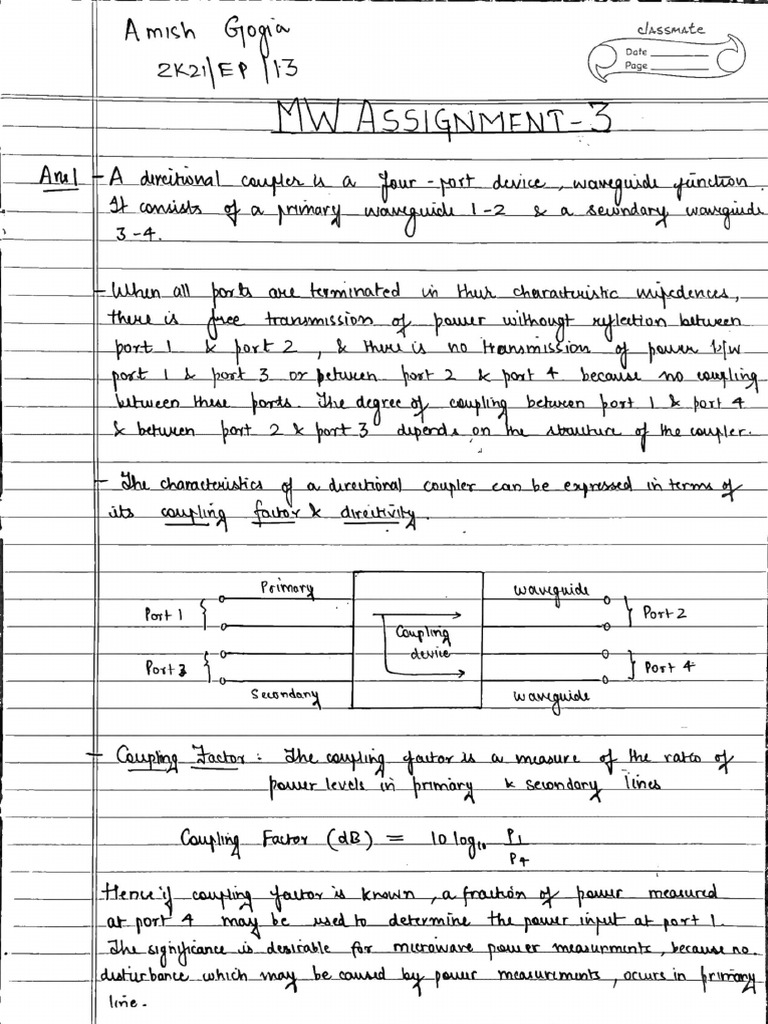 Amish Gogia
2K21/EP/13
classmate
Date
Page
MW ASSIGNMENT-3
Ans1 - A directional coupler is a four-port device, waveguide function.
It consists of a primary waveguide 1-2 & a secondary waveguide
3-4.
- When all ports are terminated in their characteristic impedences,
there is free transmission of power withougt reflection between
port 1 & port 2, & there is no transmission of power b/w
port 1 & port 3 or between port 2 & port 4 because no coupling
between these ports. The degree of coupling between port 1 & port 4
& between port 2 & port 3 depends on the structure of the coupler.
- The characteristics of a directional coupler can be expressed in terms of
its coupling factor & directivity.
Primary waveguide
Port 1 Port 2
Coupling
device
Port 3 Port 4
Secondary waveguide
- Coupling Factor: The coupling factor is a measure of the ratio of
power levels in primary & secondary lines
Coupling Factor (dB) = 10 log₁₀ P₁
P₄
Hence if coupling factor is known, a fraction of power measured
at port 4 may be used to determine the power input at port 1.
The significance is desirable for microwave power measurments, because no
disturbance which may be caused by power measurements, occurs in primary
line.